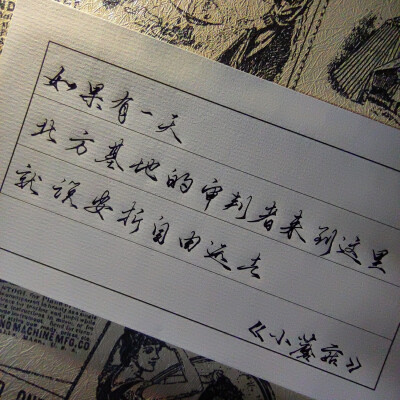 如果有一天
北方基地的审判者来到这里
就说安折自由远去
《小蘑菇》
MACHINE MFG.CO